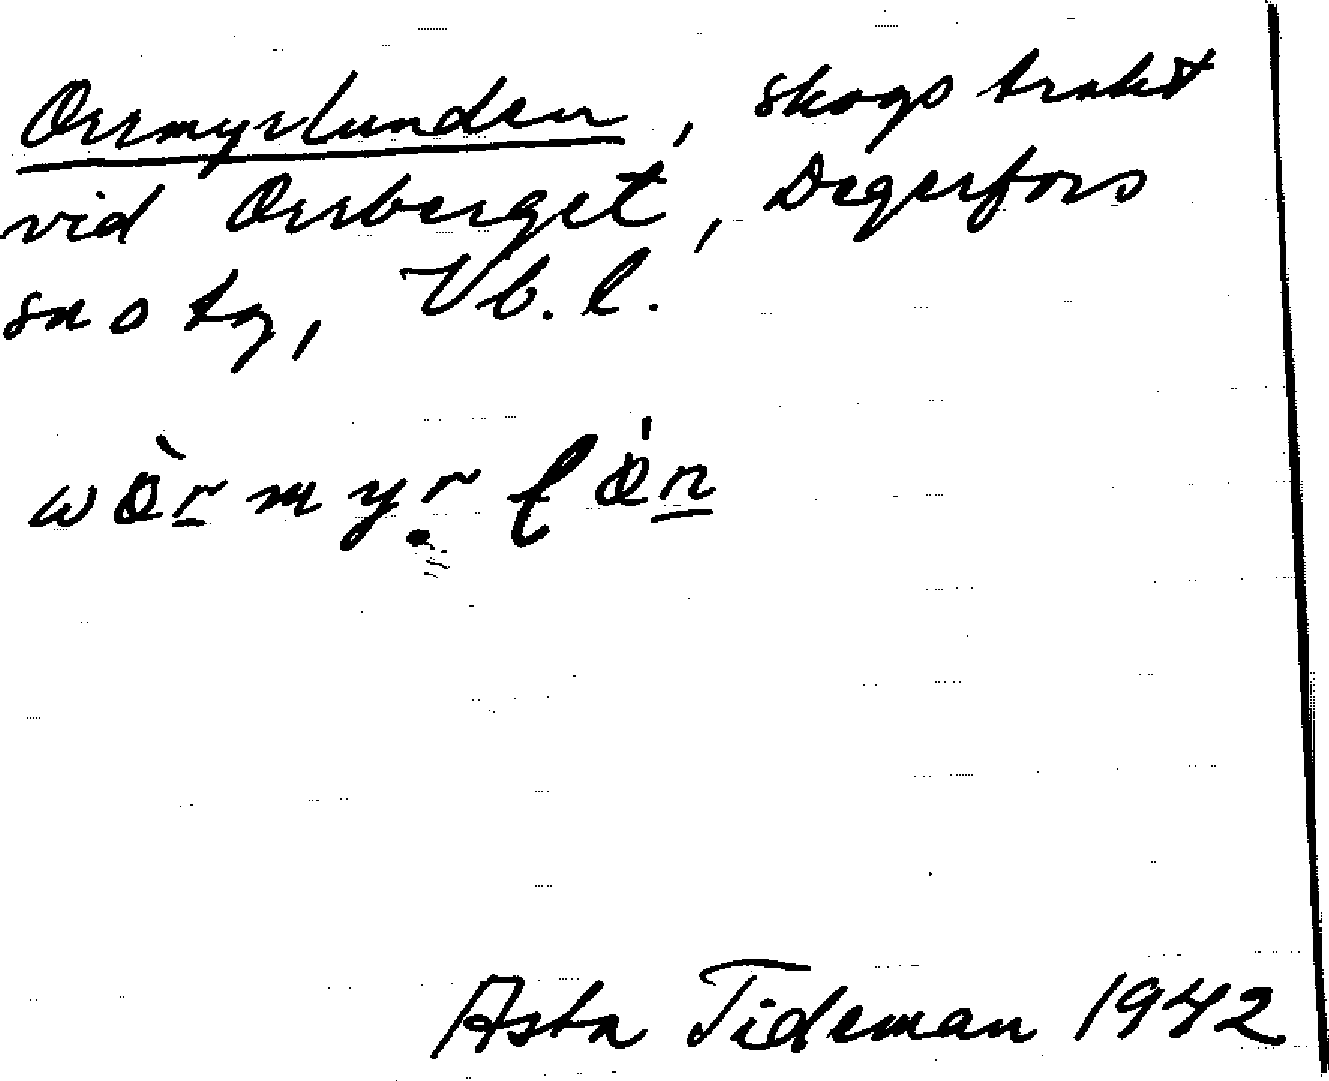 Orrmyrlunden, skogstrakt
vid Orrberget, Degerfors
sn o tg, Vb. l.
Asta Tideman 1942